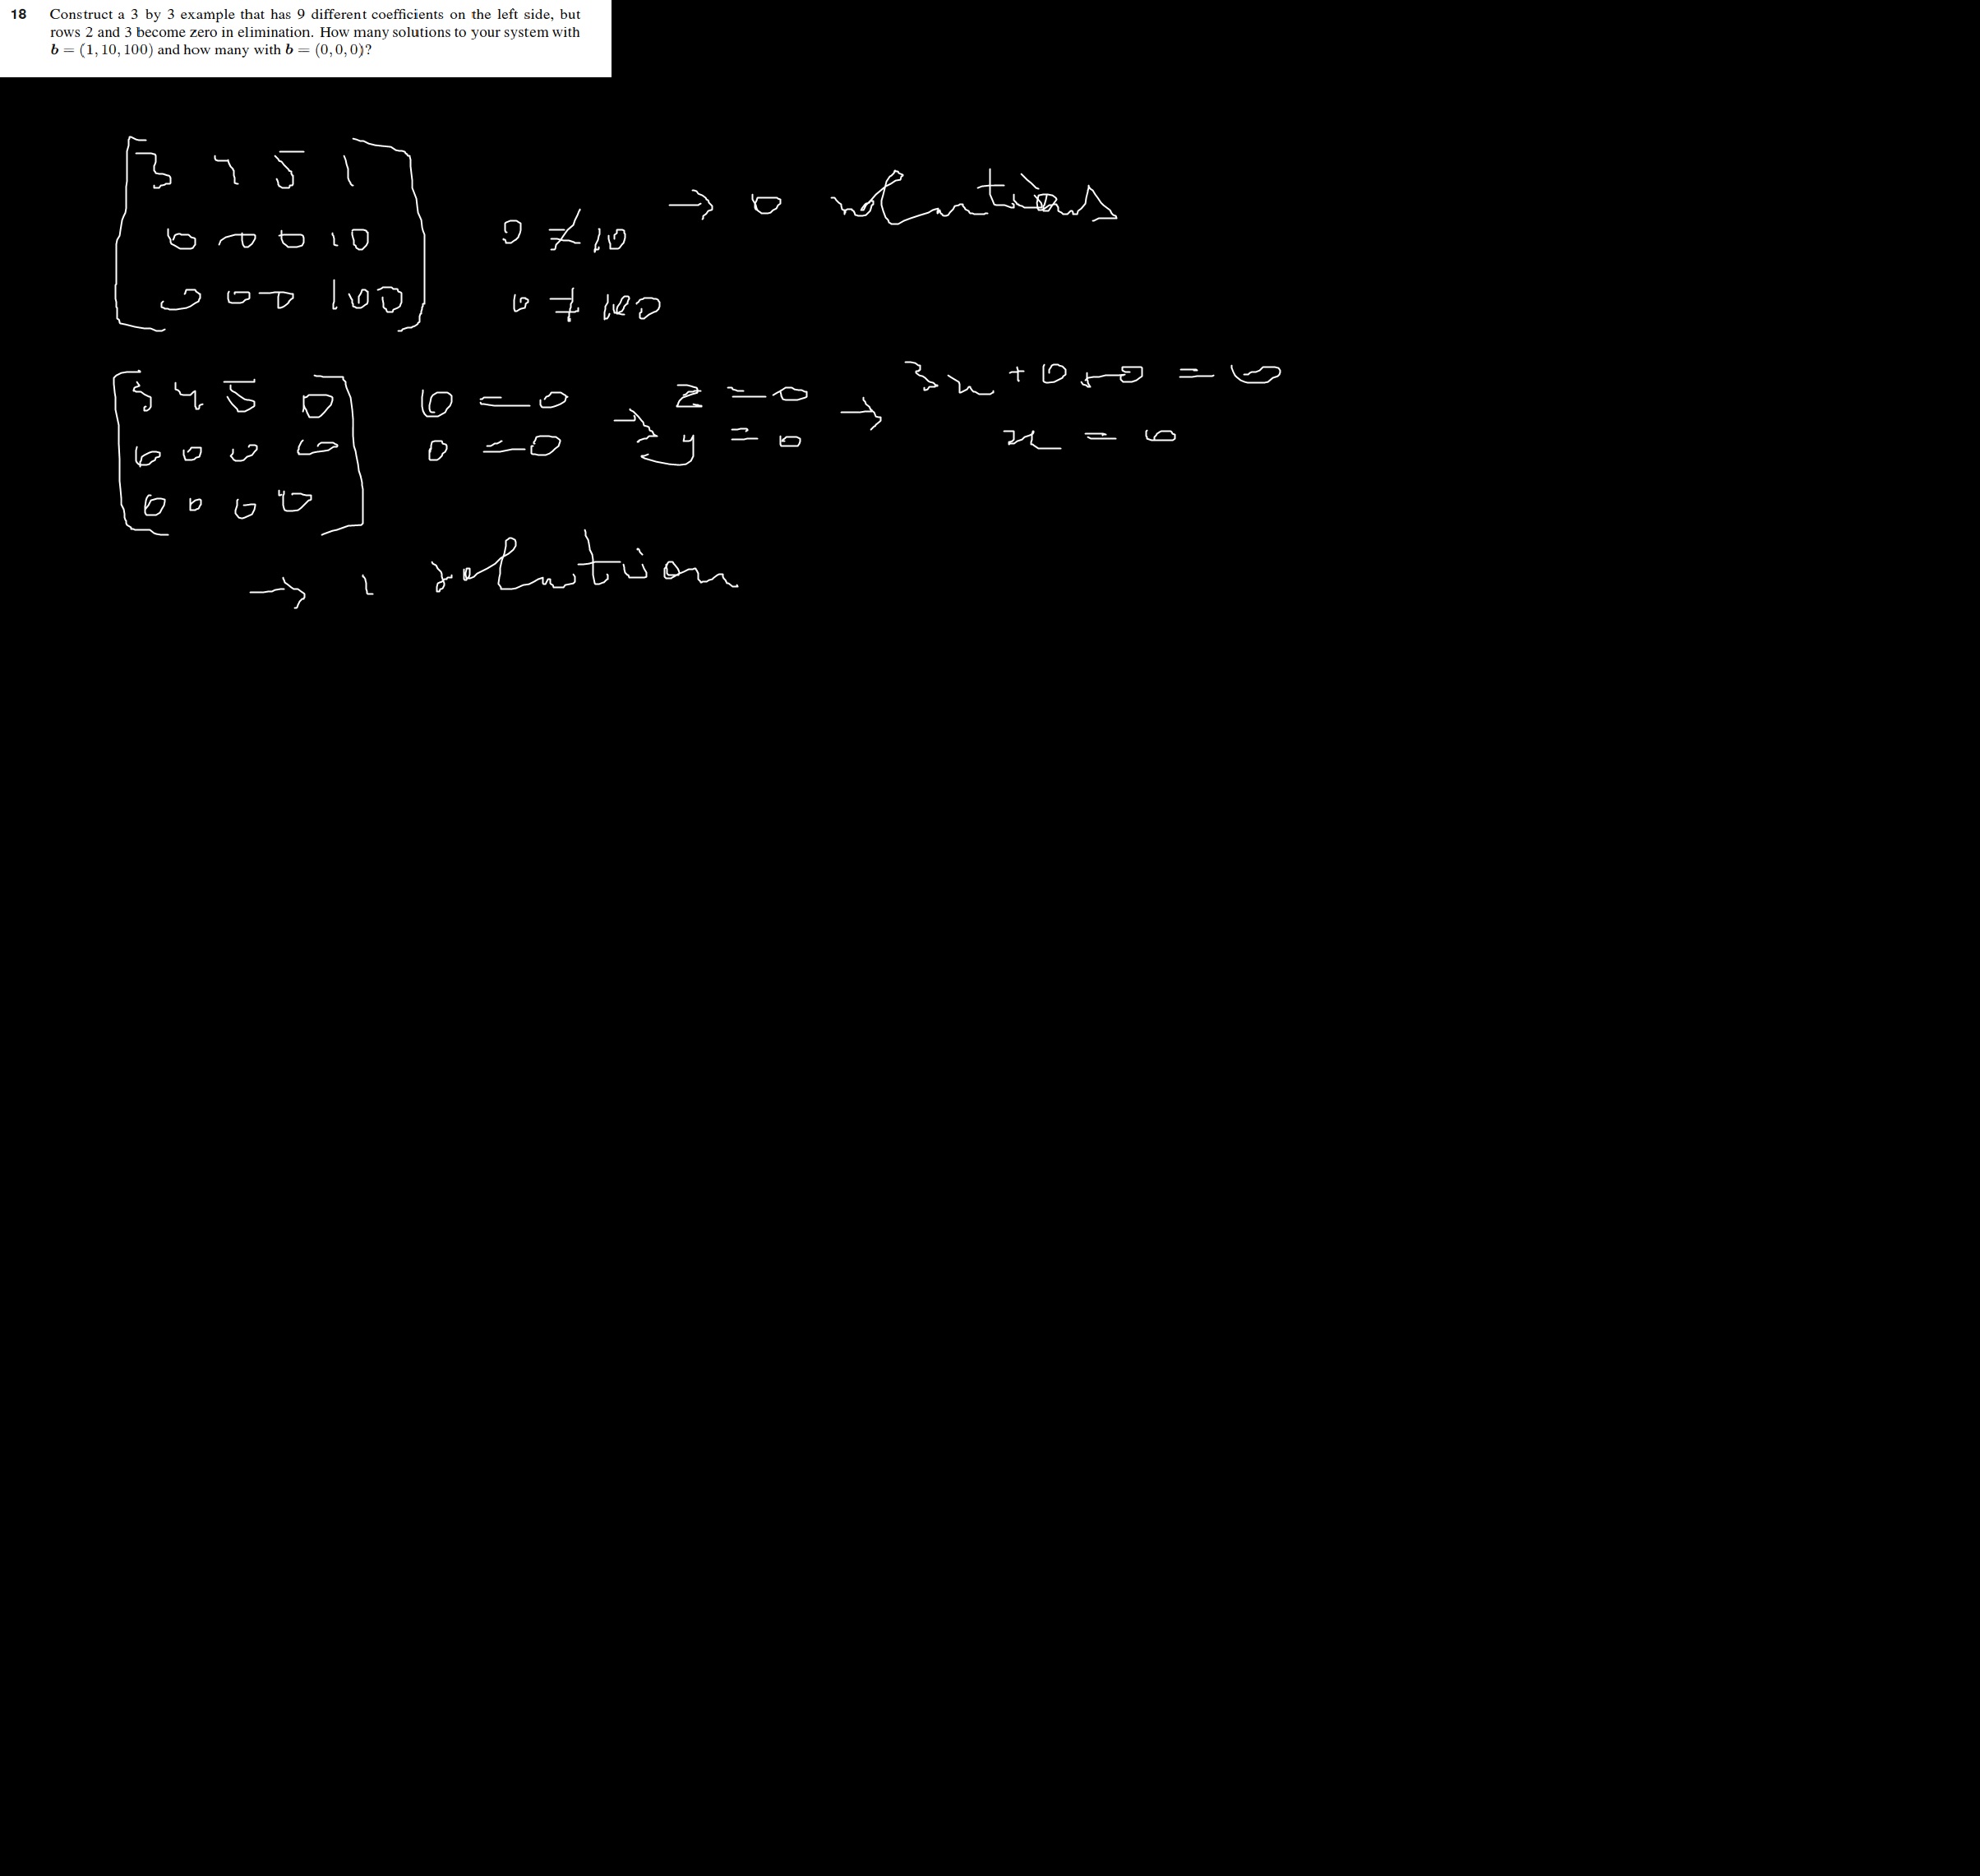 18 Construct a 3 by 3 example that has 9 different coefficients on the left side, but
rows 2 and 3 become zero in elimination. How many solutions to your system with
b = (1, 10, 100) and how many with b = (0, 0, 0)?
3 4 5 1
0 0 0 10 0 ≠ 10 → 0 solutions
0 0 0 100 0 ≠ 100
3 4 5 0 0 = 0 → z = 0 → 3x + 0 + 0 = 0
0 0 0 0 0 = 0 y = 0 x = 0
0 0 0 0
→ 1 solution